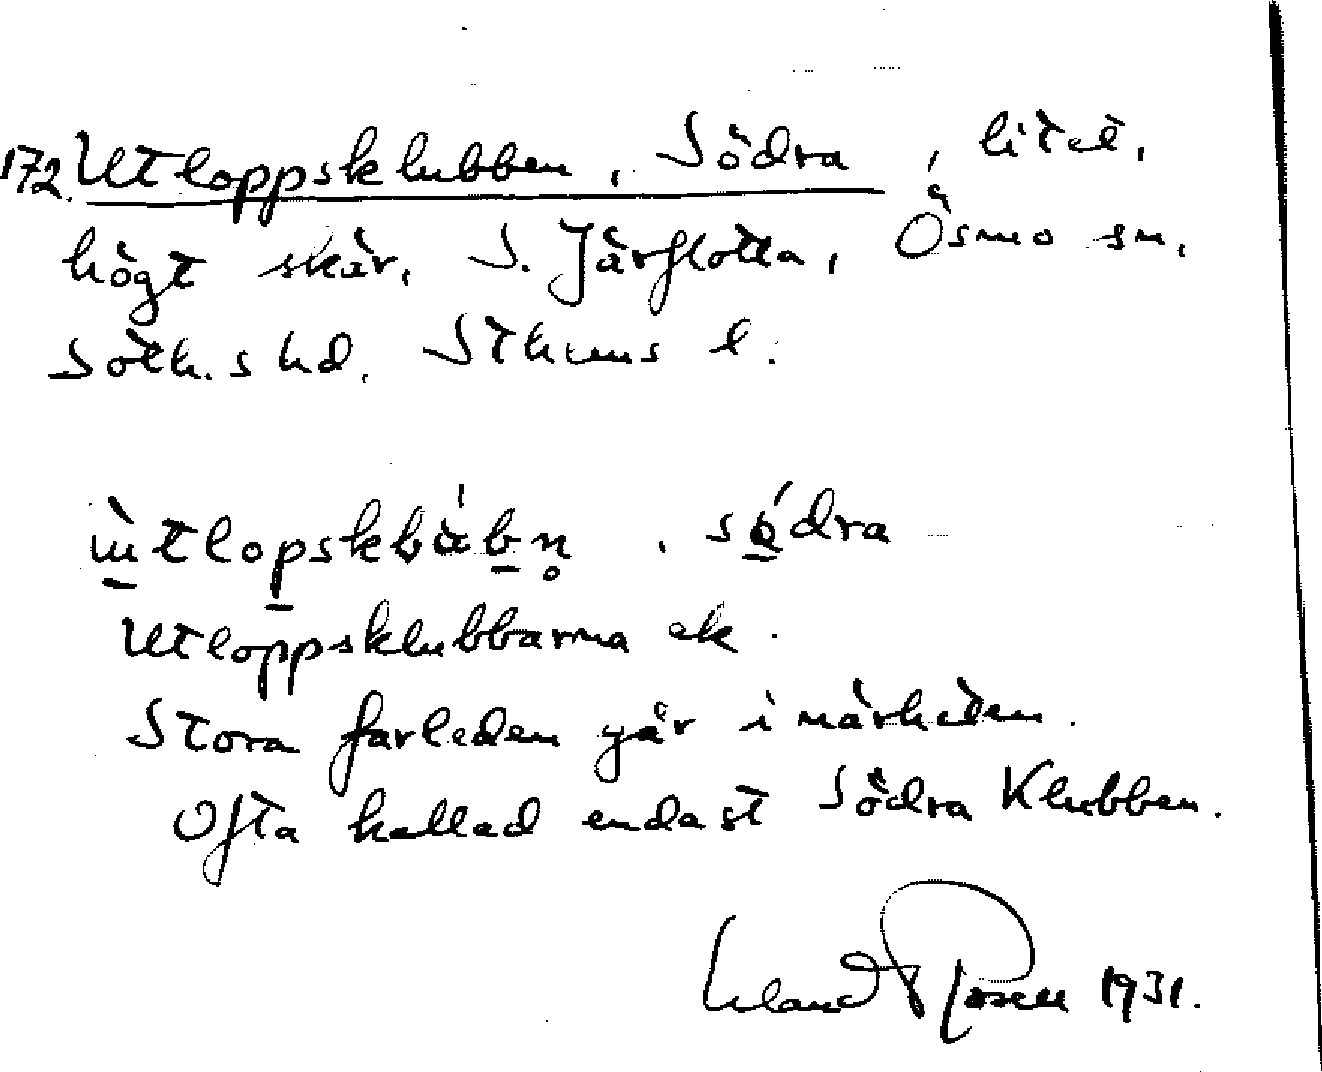 172. Utloppsklubben, Södra, litet,
högt skär, S. Järflotta, Ösmo sn,
Soth.s hd, Sthlms l.
ùtlopskbúbn̥, sǿdra
Utloppsklubbarna ek.
Stora farleden går i närheten.
Ofta kallad endast Södra Klubben.
Rosell 1931.